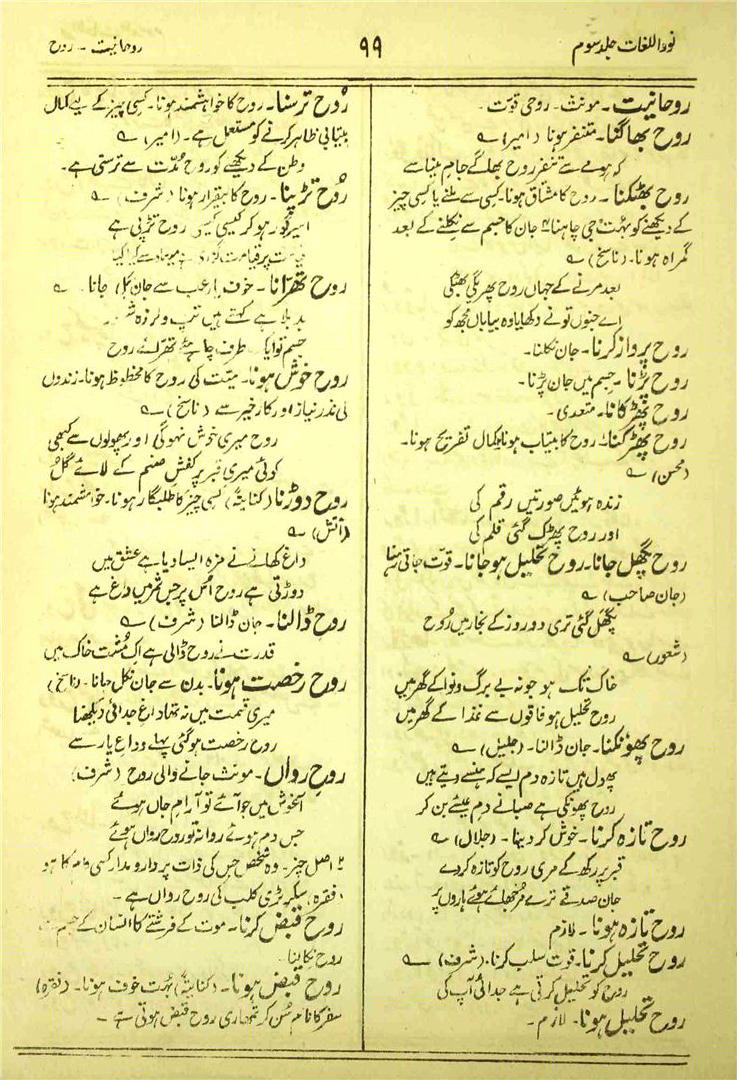 نوراللغات جلد سوم
۹۹
روحانیت - روح
روحانیت - مونث - روحی قوت -
روح بھاگنا - متنفر ہونا (امیر) ؎
کہ بوئے مے سے متنفر روح بھاگے جام مینا سے
روح بھٹکنا - روح کا مشتاق ہونا - کسی سے ملنے یا کسی چیز
کے دیکھنے کو بہت جی چاہنا ۲ جان کا جسم سے نکلنے کے بعد
گمراہ ہونا - (ناسخ) ؎
بعد مرنے کے جہاں روح پھرے گی بھٹکی
اے جنوں تو نے دکھایا وہ بیاباں مجھ کو
روح پرواز کرنا - جان نکلنا -
روح پڑنا - جسم میں جان پڑنا -
روح پھڑکانا - متعدی -
روح پھڑکنا - روح کا بیتاب ہونا ۲ کمال تفریح ہونا -
(محسن) ؎
زندہ ہوئیں صورتیں رقم کی
اور روح پھڑک گئی قلم کی
روح پگھل جانا - روح تحلیل ہو جانا - قوت جاتی رہنا
(جان صاحب) ؎
پگھل گئی تری دو روز کے بخار میں روح
(شعور) ؎
خاک تک ہو جو نہ بے برگ و نوا کے گھر میں
روح تحلیل ہو فاقوں سے غذا کے گھر میں
روح پھونکنا - جان ڈالنا - (جلیل) ؎
پھول ہیں تازہ دم ایسے کہ ہنسے دیتے ہیں
روح پھونکی ہے صبا نے دم عیسے بن کر
روح تازہ کرنا - خوش کر دینا - (جلال) ؎
قبر پر رکھ کے مری روح کو تازہ کر دے
جان صدقے ترے مرجھائے ہوئے ہاروں پر
روح تازہ ہونا - لازم
روح تحلیل کرنا - قوت سلب کرنا - (شرف) ؎
روح کو تحلیل کرتی ہے جدائی آپ کی
روح تحلیل ہونا - لازم -
رُوح ترسنا - روح کا خواہشمند ہونا - کسی چیز کے لیے کمال
بیتابی ظاہر کرنے کو مستعمل ہے - (امیر) ؎
وطن کے دیکھنے کو روح مدّت سے ترستی ہے -
رُوح تڑپنا - روح کا بیقرار ہونا (شرف) ؎
اسیر گور ہو کر کیسی کیسی روح تڑپی ہے
قیامت پر قیامت
روح تھرّانا - خوف یا رعب سے جان نکل جانا - ؎
بد بلا ہے کہتے ہیں تپ و لرزہ
جسم تو ایک طرف چاہیئے تھرائے روح
روح خوش ہونا - میّت کی روح کا محظوظ ہونا - زندوں
کی نذر نیاز اور کار خیر سے (ناسخ) ؎
روح میری خوش نہ ہوگی اور پھولوں سے کبھی
کوئی میری قبر پر کفشِ صنم کے لائے گل
روح دوڑنا (کنایۃً) کسی چیز کا طلبگار ہونا - خواہشمند ہونا
(آتش) ؎
داغ کھانے نے مزہ ایسا دیا ہے عشق میں
دوڑتی ہے روح اُس پر جس ثمر میں داغ ہے
روح ڈالنا - جان ڈالنا (شرف) ؎
قدرت نے روح ڈالی ہے اک مُشت خاک میں
روح رخصت ہونا - بدن سے جان نکل جانا - (ناسخ)
میری قسمت میں نہ تھا داغِ جدائی دیکھنا
روح رخصت ہو گئی پہلے وداعِ یار سے
روحِ رواں - مونث جانے والی روح (شرف)
آغوش میں جو آئے تو آرامِ جاں ہوئے
جس دم ہوئے روانہ تو روحِ رواں ہوئے
۲ اصل چیز - وہ شخص جس کی ذات پر دار و مدار کسی کام کا ہو
(فقرہ) سکرٹری کلب کی روح رواں ہے -
روح قبض کرنا - موت کے فرشتے کا انسان کے جسم سے
روح نکالنا -
روح قبض ہونا - (کنایۃً) بہت خوف ہونا - (فقرہ)
سفر کا نام سُن کر تمہاری روح قبض ہوتی ہے -